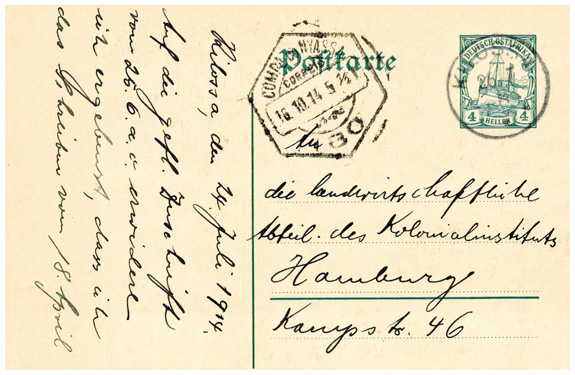 Kilossa, den 24 Juli 1914.
Auf die gefl. Zuschrift
vom 25.6. a.c. erwidere
ich ergebenst, dass ich
das Schreiben vom 18 April
COMPA. DO NYASSA
CORREIO
16.10.14 5
IBO
Postkarte
DEUTSCH-OSTAFRIKA
4 HELLER 4
KILOSSA
An
die landwirtschaftliche
Abteil. des Kolonialinstituts
Hamburg
Kampstr. 46